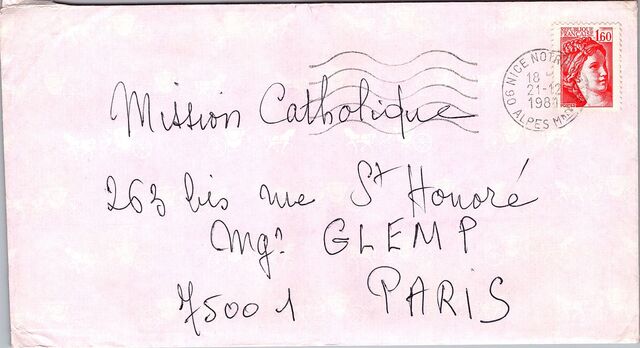 REPUBLIQUE
FRANCAISE
1,60
06 NICE NOTR
18
21-12
1981
ALPES M
Mission Catholique
263 bis rue St Honoré
Mgr GLEMP
75001 PARIS